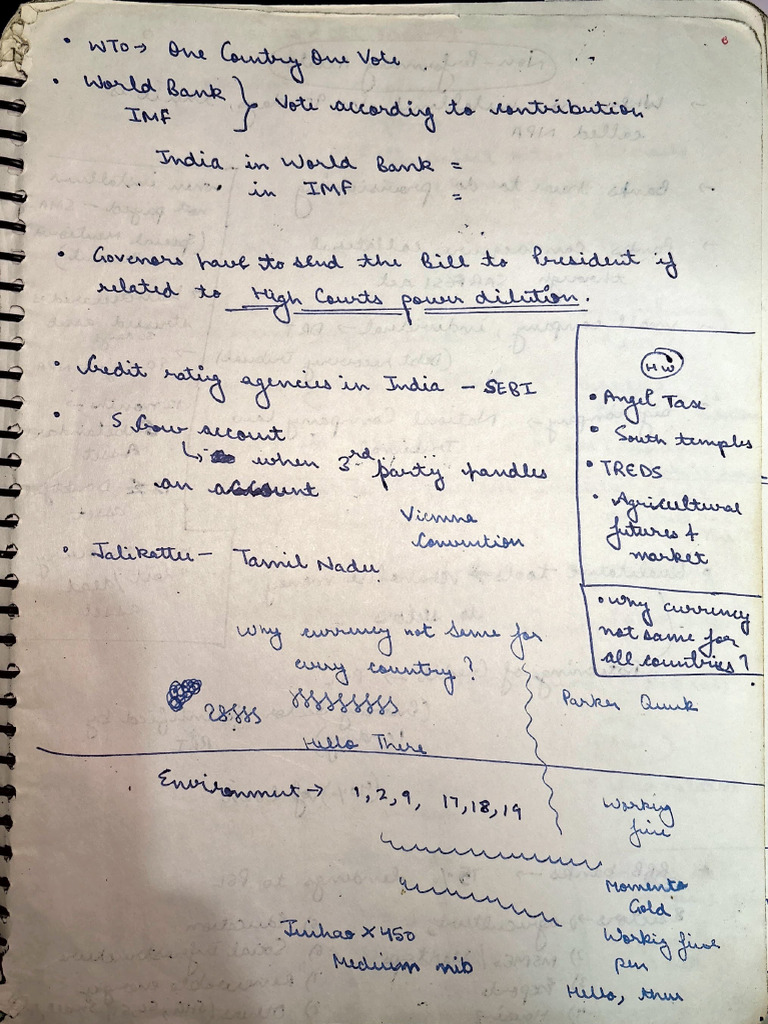 • WTO → One Country One Vote
• World Bank
IMF
} Vote according to contribution
India in World Bank =
in IMF =
• Govenors have to send the Bill to President if
related to High Courts power dilution.
• Credit rating agencies in India – SEBI
• S Crow account
↳ when 3rd party handles
an account
Vienna
Convention
• Jalikattu – Tamil Nadu
HW
• Angel Tax
• South temples
• TREDS
• Agricultural
futures &
market
• Why currency
not same for
all countries?
Why currency not same for
every country?
Hello There
Parker Quink
Environment → 1, 2, 9, 17, 18, 19
Working
fine
Momento
Gold
Jinhao X 450
Medium nib
Working fine
pen
Hello,